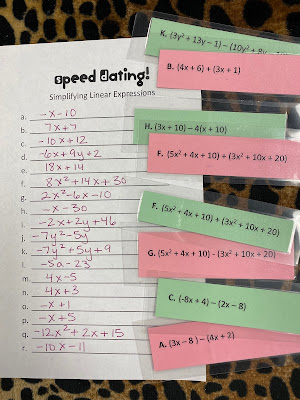 Speed Dating!
Simplifying Linear Expressions
a. -x-10
b. 7x+7
c. -10x+12
d. -6x+9y+2
e. 18x+14
f. 8x²+14x+30
g. 2x²-6x-10
h. -x-30
i. -2x+2y+46
j. -7y²-5y
k. -7y²+5y+9
l. -5a-23
m. 4x-5
n. 4x+3
o. -x+1
p. -x+5
q. -12x²+2x+15
r. -10x-11
K. (3y² + 13y – 1) – (10y² + 8y
B. (4x + 6) + (3x + 1)
H. (3x + 10) – 4(x + 10)
F. (5x² + 4x + 10) + (3x² + 10x + 20)
F. (5x² + 4x + 10) + (3x² + 10x + 20)
G. (5x² + 4x + 10) - (3x² + 10x + 20)
C. (-8x + 4) – (2x – 8)
A. (3x – 8 ) – (4x + 2)